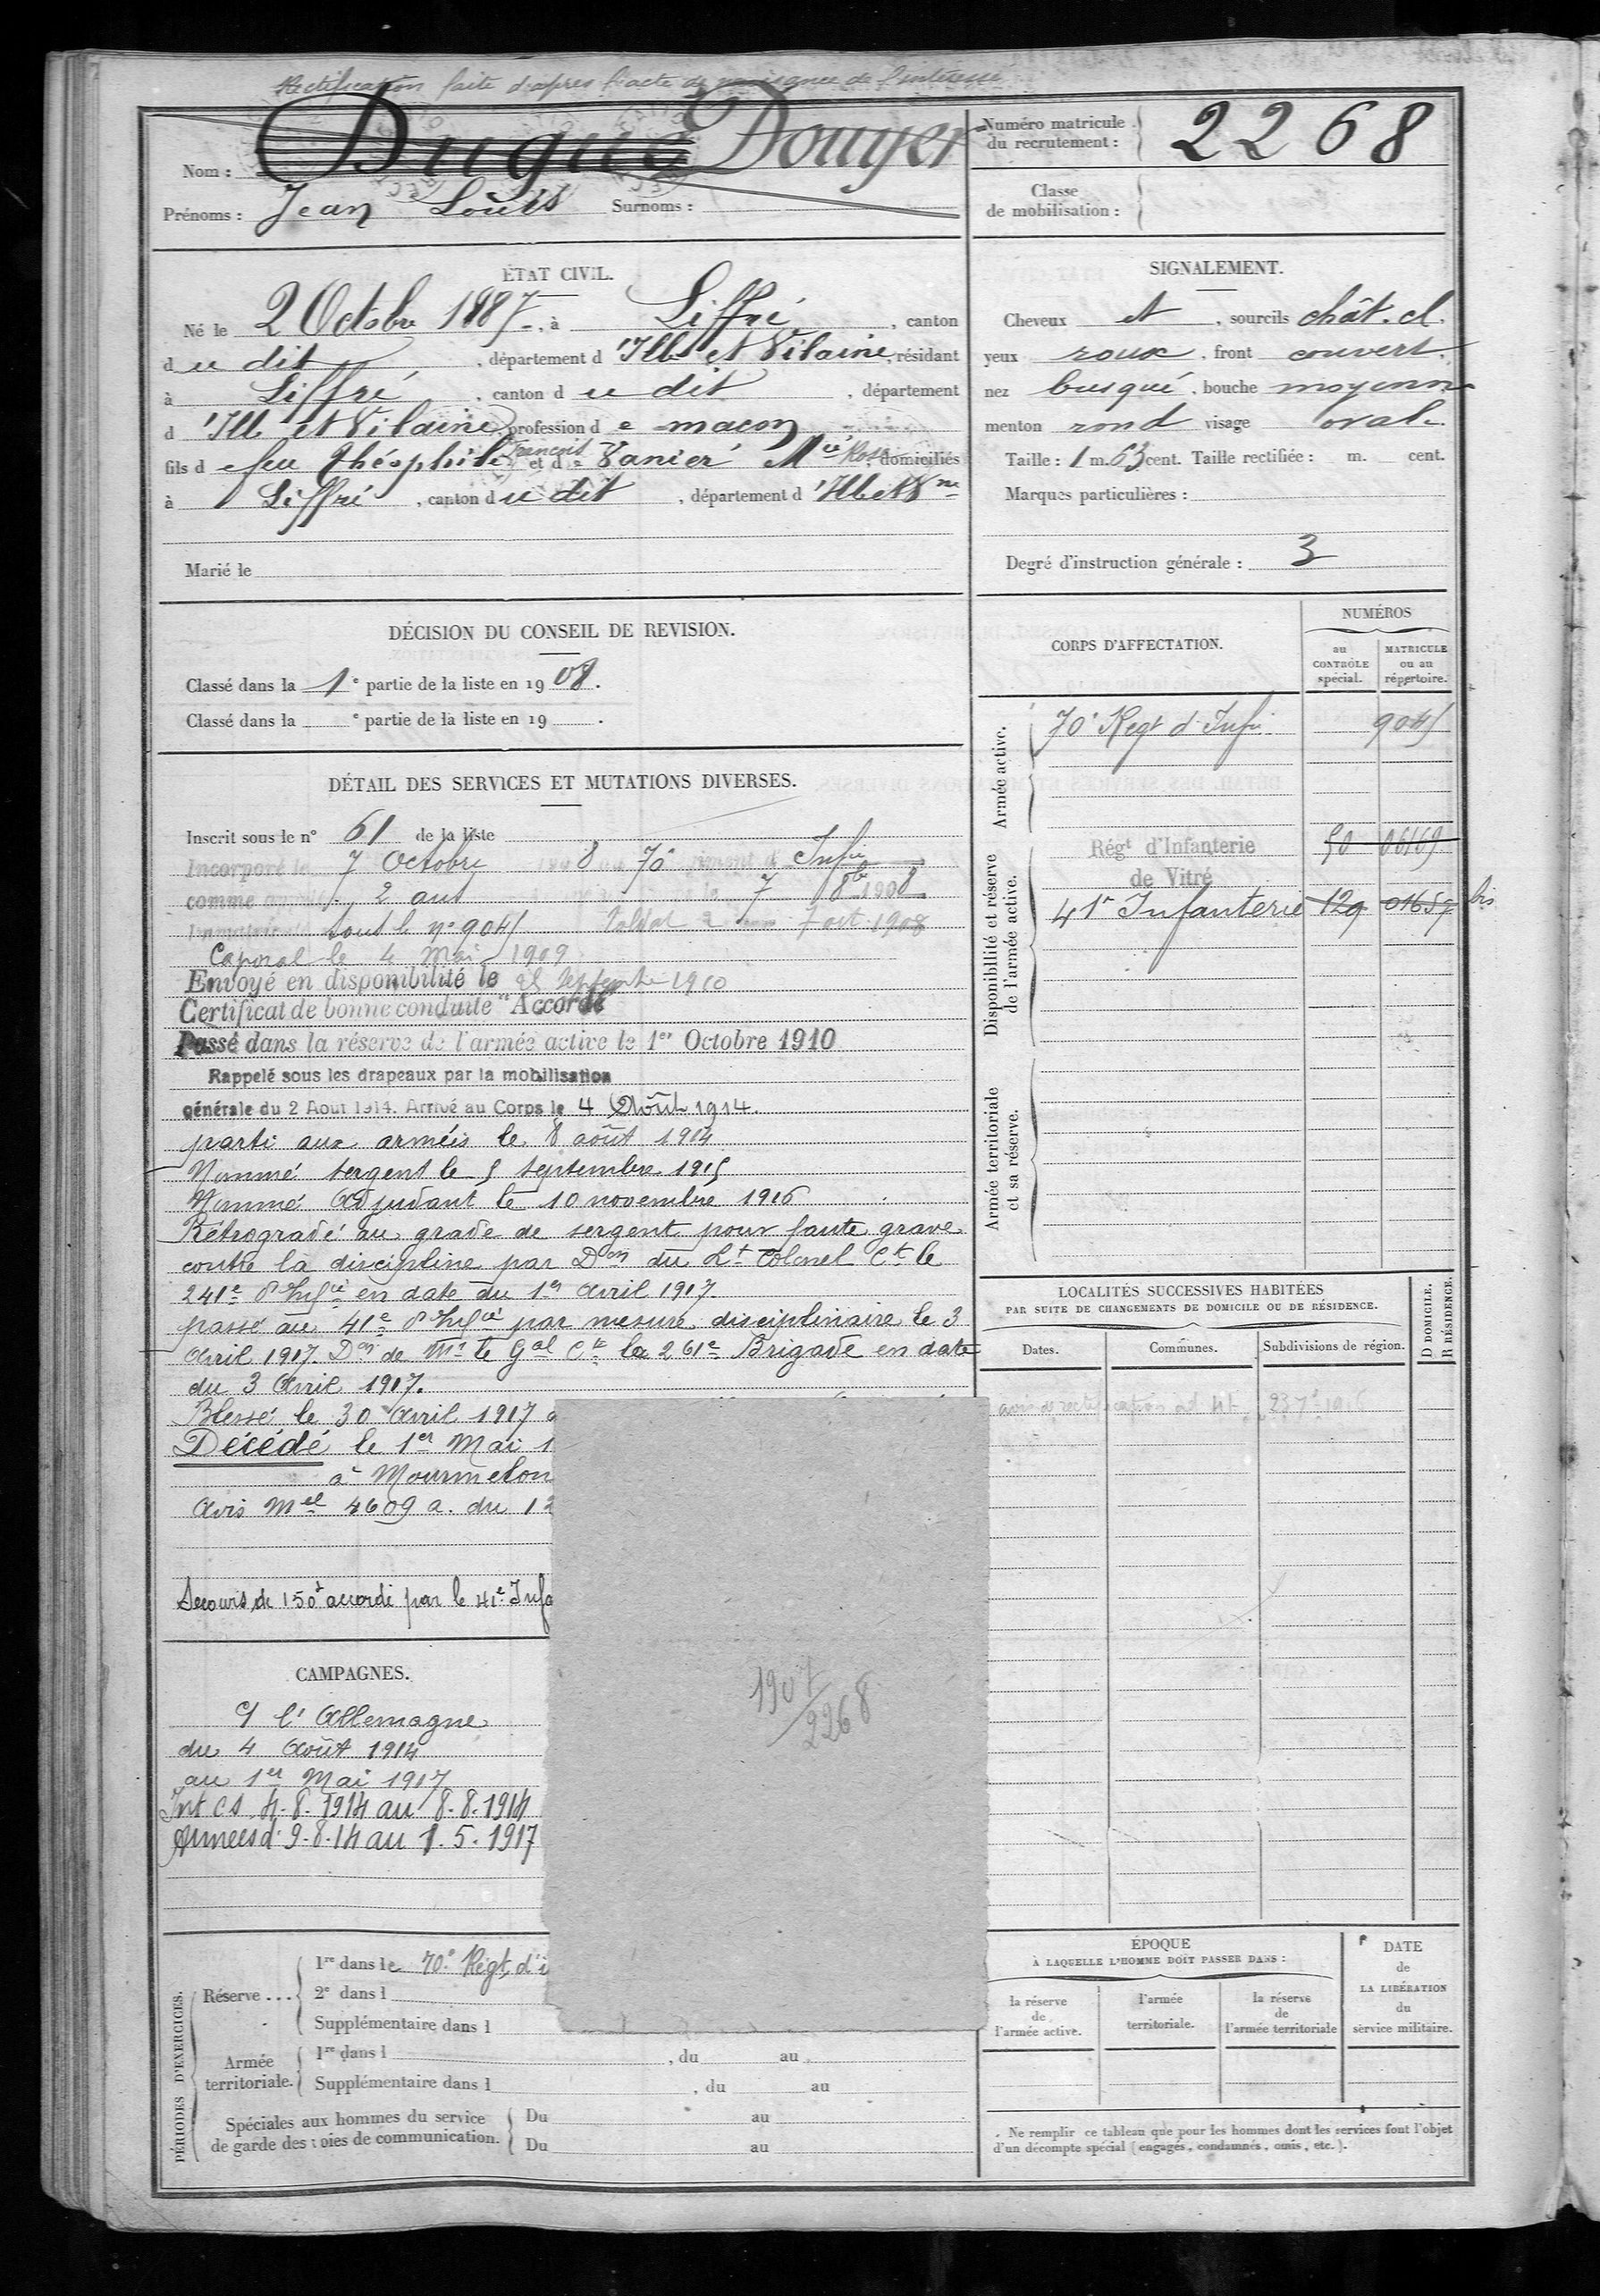 Rectification faite d'après l'acte de naissance de l'intéressé
Nom : Dugué Douyer
Prénoms : Jean Louis Surnoms :
Numéro matricule du recrutement : 2268
Classe de mobilisation :
ÉTAT CIVIL.
Né le 2 Octobre 1887, à Liffré, canton
du dit, département d'Ille et Vilaine, résidant
à Liffré, canton du dit, département
d'Ille et Vilaine, profession de maçon
fils de feu Théophile François et de Vanier Mie Rose, domiciliés
à Liffré, canton du dit, département d'Ille et Vne
Marié le
SIGNALEMENT.
Cheveux et, sourcils chât. cl.
yeux roux, front couvert,
nez busqué, bouche moyenne
menton rond visage ovale
Taille : 1 m. 63 cent. Taille rectifiée : m. cent.
Marques particulières :
Degré d'instruction générale : 3
DÉCISION DU CONSEIL DE REVISION.
Classé dans la 1e partie de la liste en 1908.
Classé dans la e partie de la liste en 19 .
DÉTAIL DES SERVICES ET MUTATIONS DIVERSES.
Inscrit sous le n° 61 de la liste
Incorporé le 7 Octobre 8 70e Infie
comme 2 ans 7 8bre 1908
sous le n° 904 7 oct. 1908
Caporal le 4 Mai 1909
Envoyé en disponibilité le Septembre 1910
Certificat de bonne conduite "Accordé"
Passé dans la réserve de l'armée active le 1er Octobre 1910
Rappelé sous les drapeaux par la mobilisation
générale du 2 Août 1914. Arrivé au Corps le 4 Août 1914.
parti aux armées le 8 août 1914
Nommé sergent le 5 septembre 1915
Nommé Adjudant le 10 novembre 1916
Rétrogradé au grade de sergent pour faute grave
contre la discipline par Don du Lt Colonel Ct le
241e d'Infie en date du 1er Avril 1917.
passé au 41e d'Infie par mesure disciplinaire le 3
Avril 1917. Don de Mr le Gal Ct la 261e Brigade en date
du 3 Avril 1917.
Blessé le 30 Avril 1917
Décédé le 1er Mai 1
à Mourmelon
Avis Mel 4609 a. du 12
Secours de 150f accordé par le 41e Infa
CORPS D'AFFECTATION.
NUMÉROS
au CONTRÔLE spécial.
MATRICULE ou au répertoire.
Armée active.
70e Regt d'Infie 904
Disponibilité et réserve de l'armée active.
Régt d'Infanterie de Vitré 50 06169
41e Infanterie 129 01659 bis
Armée territoriale et sa réserve.
LOCALITÉS SUCCESSIVES HABITÉES
PAR SUITE DE CHANGEMENTS DE DOMICILE OU DE RÉSIDENCE.
Dates.
Communes.
Subdivisions de région.
D DOMICILE.
R RÉSIDENCE.
avis de rectification
CAMPAGNES.
C/ l'Allemagne
du 4 Août 1914
au 1er Mai 1917
Int CS 4-8-1914 au 8.8.1914
Armées d: 9-8-14 au 1.5.1917
1907
2268
PÉRIODES D'EXERCICES.
Réserve ...
1re dans le 70e Régt d'i
2e dans l
Supplémentaire dans l
Armée territoriale.
1re dans l , du au
Supplémentaire dans l , du au
Spéciales aux hommes du service
de garde des voies de communication.
Du au
Du au
ÉPOQUE
À LAQUELLE L'HOMME DOIT PASSER DANS :
la réserve de l'armée active.
l'armée territoriale.
la réserve de l'armée territoriale
DATE de LA LIBÉRATION du service militaire.
Ne remplir ce tableau que pour les hommes dont les services font l'objet
d'un décompte spécial (engagés, condamnés, omis, etc.).